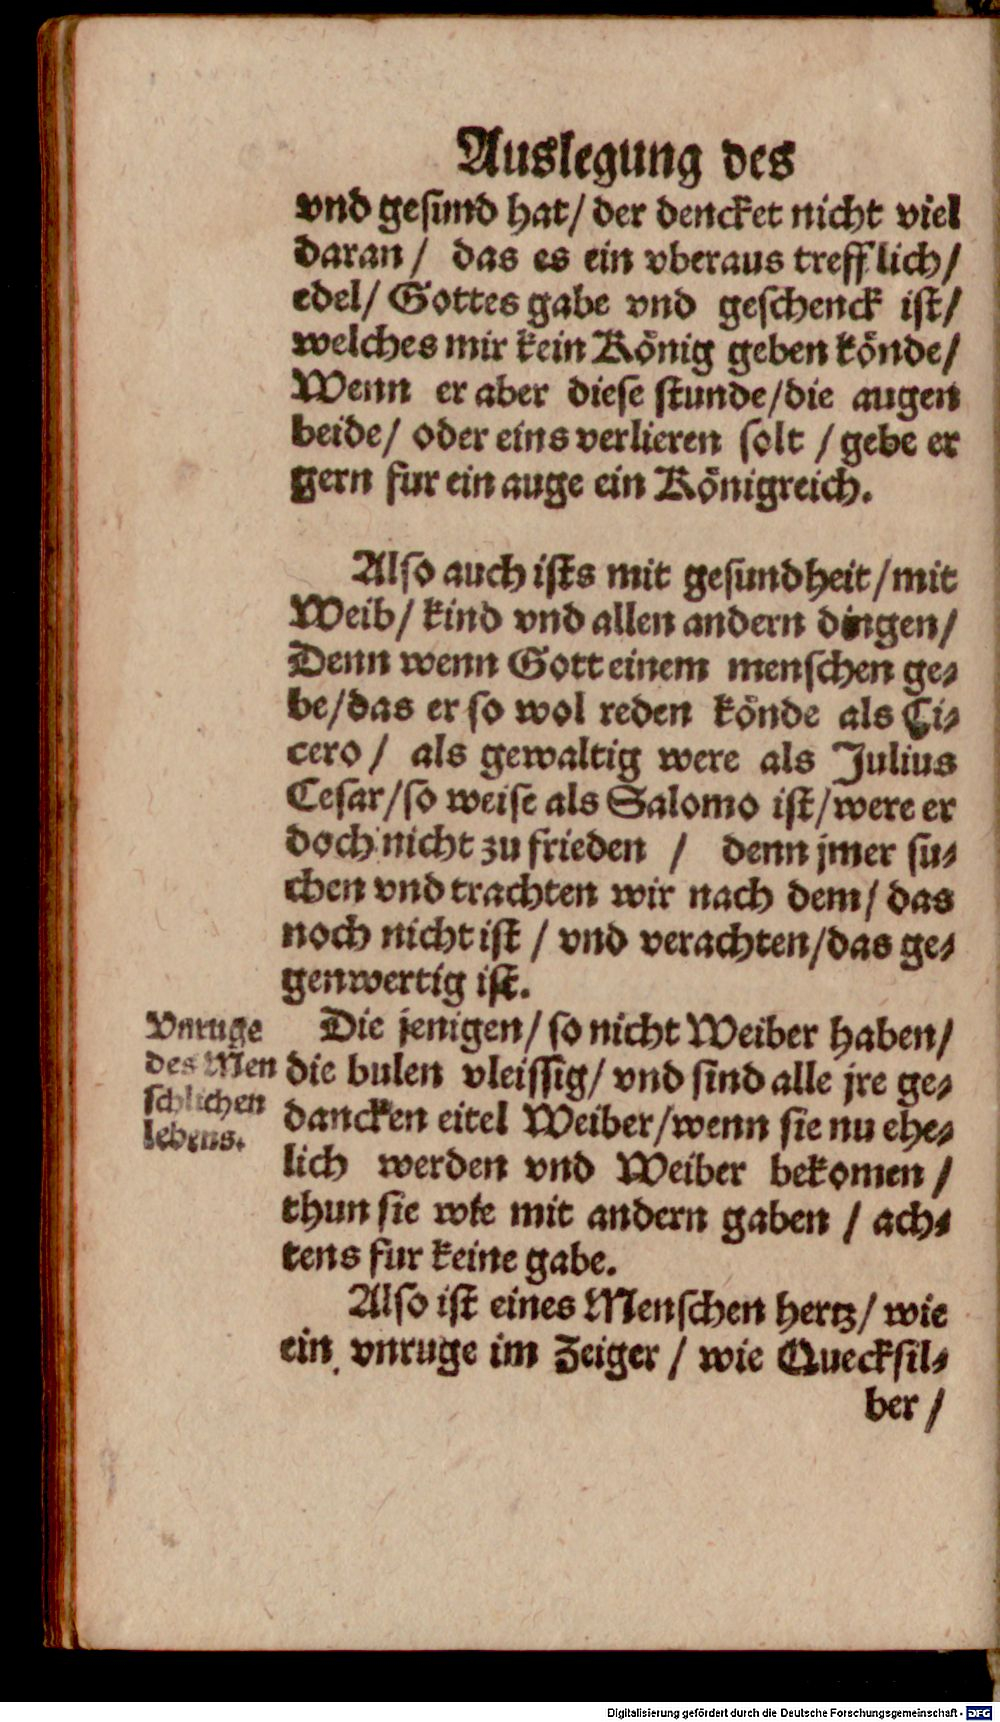 Auslegung des
vnd gesund hat/ der dencket nicht viel
daran / das es ein vberaus trefflich/
edel/ Gottes gabe vnd geschenck ist/
welches mir kein König geben könde/
Wenn er aber diese stunde/die augen
beide/ oder eins verlieren solt / gebe er
gern fur ein auge ein Königreich.
Also auch ists mit gesundheit/mit
Weib/ kind vnd allen andern dingen/
Denn wenn Gott einem menschen ge-
be/das er so wol reden könde als Ci-
cero / als gewaltig were als Julius
Cesar/so weise als Salomo ist/were er
doch nicht zu frieden / denn jmer su-
chen vnd trachten wir nach dem/ das
noch nicht ist / vnd verachten/das ge-
genwertig ist.
Vnruge
des Men
schlichen
lebens.
Die jenigen/ so nicht Weiber haben/
die bulen vleissig/ vnd sind alle jre ge-
dancken eitel Weiber/wenn sie nu ehe-
lich werden vnd Weiber bekomen /
thun sie wie mit andern gaben / ach-
tens fur keine gabe.
Also ist eines Menschen hertz/ wie
ein vnruge im Zeiger / wie Quecksil-
ber /
Digitalisierung gefördert durch die Deutsche Forschungsgemeinschaft - DFG